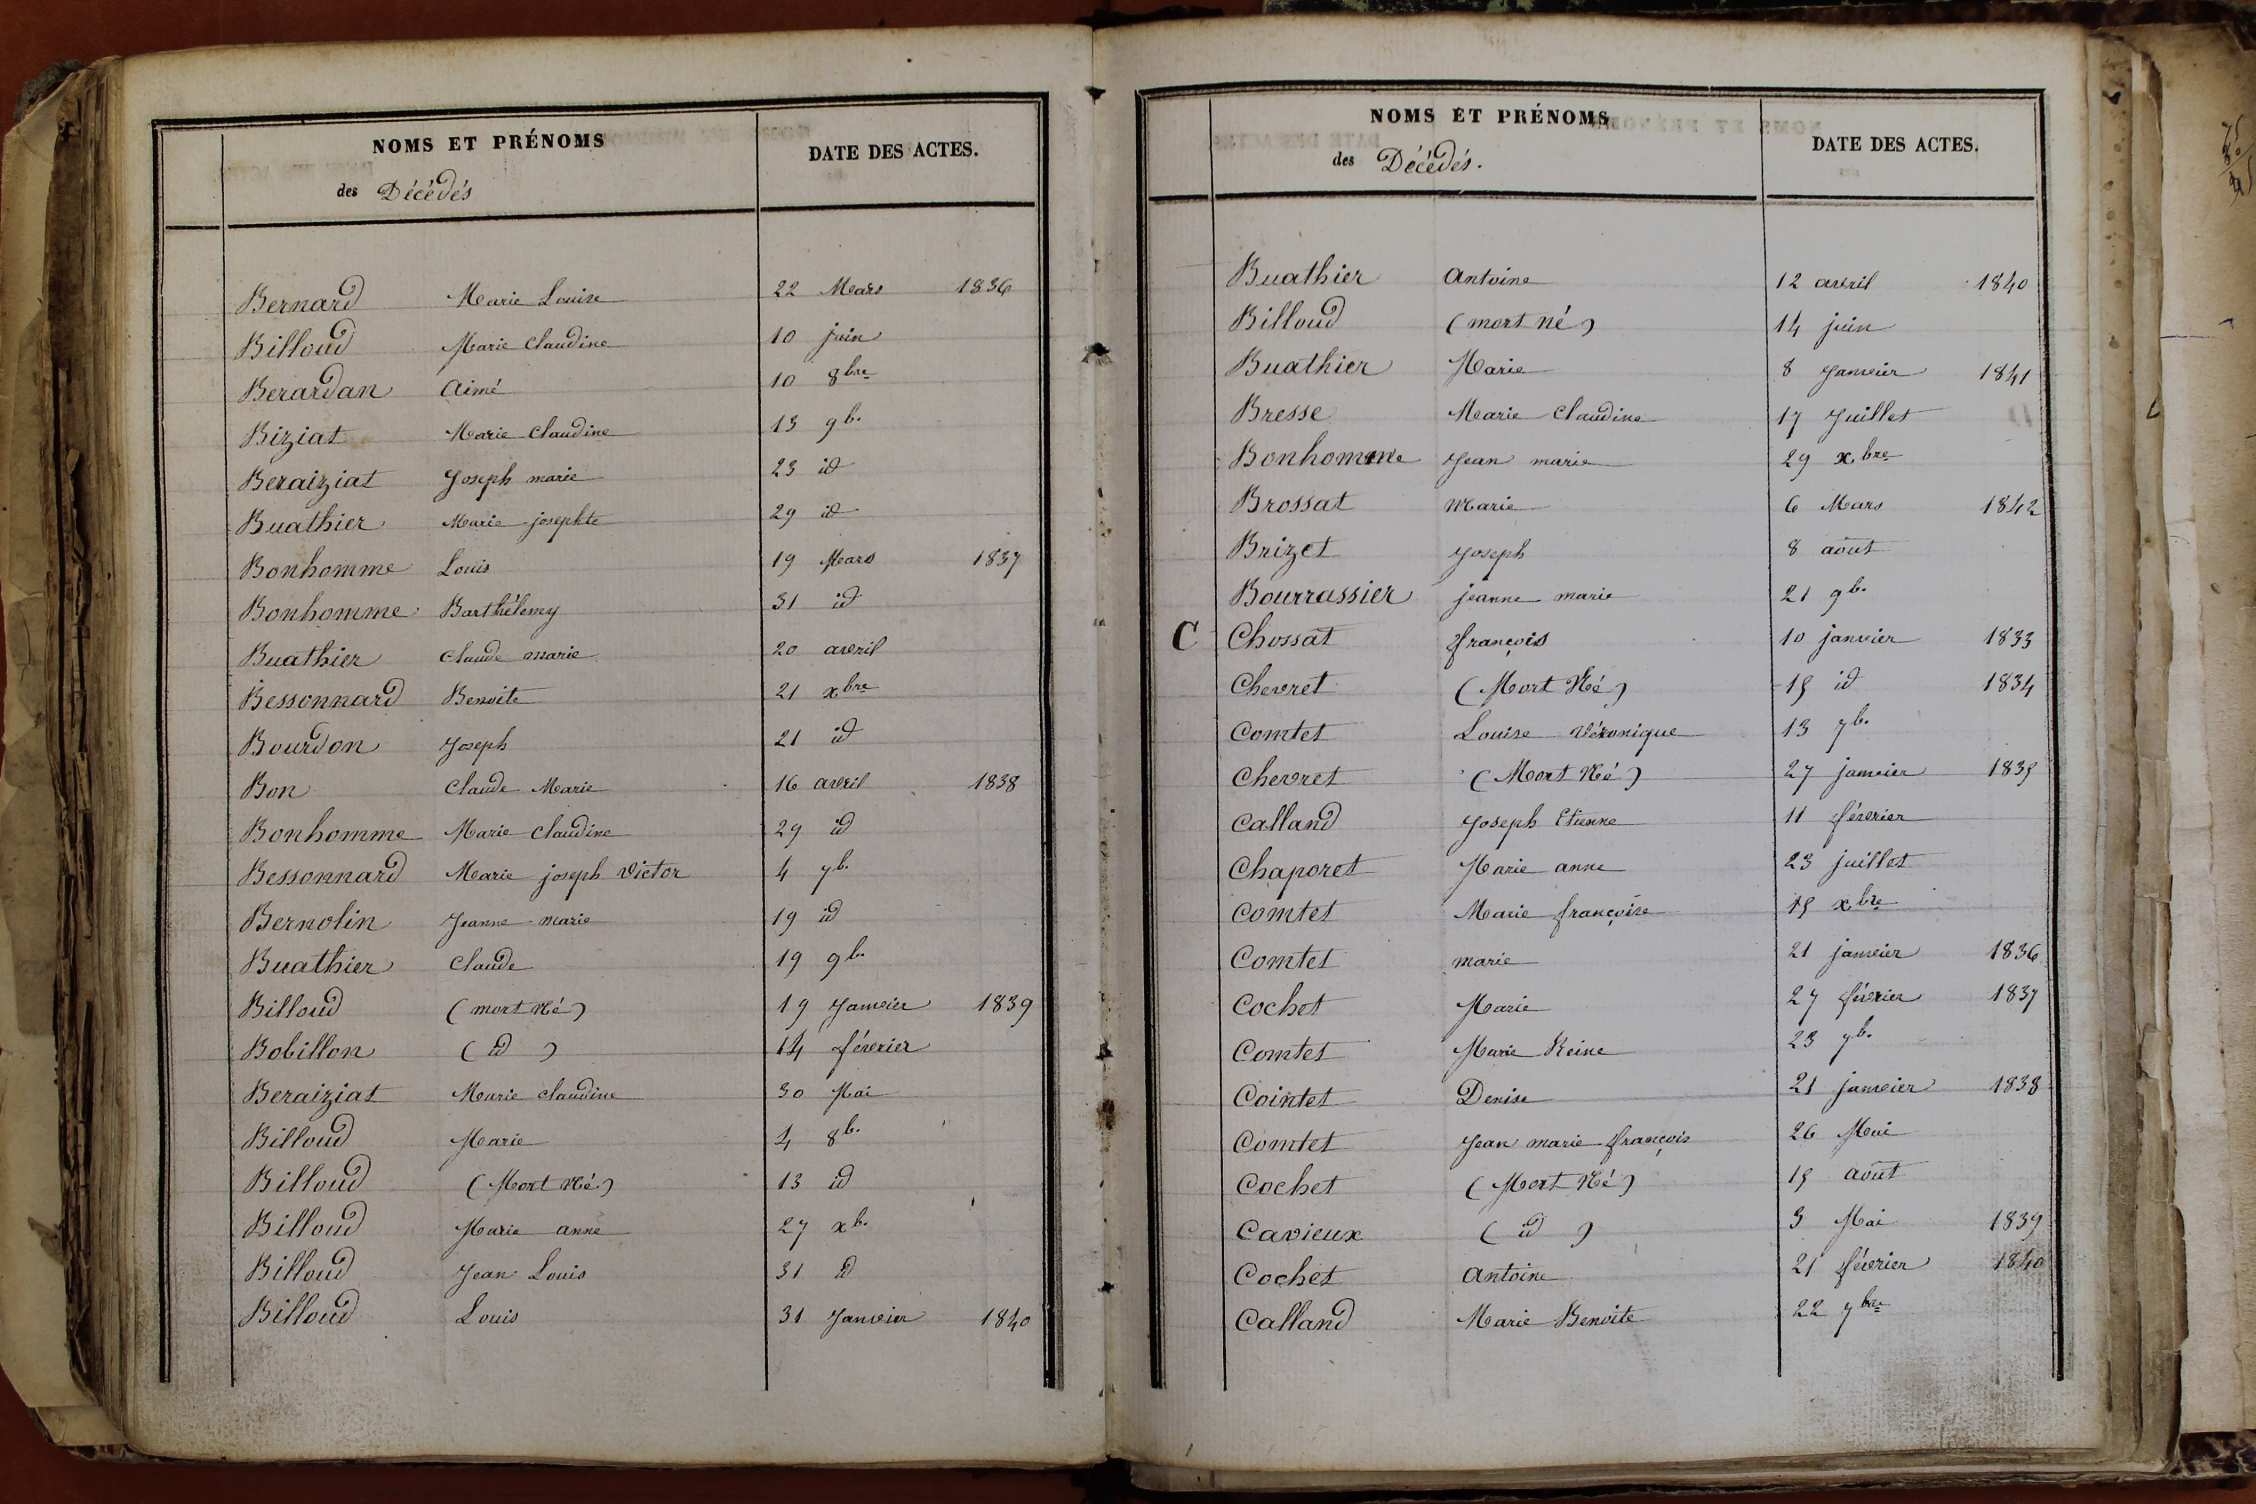 NOMS ET PRÉNOMS
des Décédés
DATE DES ACTES.
Bernard Marie Louise 22 Mars 1836
Billoud Marie Claudine 10 juin
Berardan Aimé 10 8bre
Biziat Marie Claudine 13 9b.
Beraiziat Joseph marie 23 id
Buathier Marie josephte 29 id
Bonhomme Louis 19 Mars 1837
Bonhomme Barthélemy 31 id
Buathier Claude marie 20 avril
Bessonnard Benoite 21 xbre
Bourdon Joseph 21 id
Bon Claude Marie 16 avril 1838
Bonhomme Marie Claudine 29 id
Bessonnard Marie joseph Victor 4 7b.
Bernolin Jeanne marie 19 id
Buathier Claude 19 9b.
Billoud (mort Né) 19 Janvier 1839
Bobillon (id) 14 février
Beraiziat Marie Claudine 30 Mai
Billoud Marie 4 8b.
Billoud (Mort Né) 13 id
Billoud Marie anne 27 xb.
Billoud Jean Louis 31 id
Billoud Louis 31 Janvier 1840
NOMS ET PRÉNOMS
des Décédés.
DATE DES ACTES.
Buathier Antoine 12 avril 1840
Billoud (mort né) 14 juin
Buathier Marie 8 Janvier 1841
Bresse Marie Claudine 17 Juillet
Bonhomme Jean marie 29 xbre
Brossat Marie 6 Mars 1842
Brizet Joseph 8 août
Bourrassier jeanne marie 21 9b.
C Chossat françois 10 janvier 1833
Chevret (Mort Né) 15 id 1834
Comtet Louise Véronique 13 7b.
Chevret (Mort Né) 27 janvier 1835
Calland Joseph Etienne 11 février
Chaporet Marie anne 23 juillet
Comtet Marie françoise 15 xbre
Comtet marie 21 janvier 1836
Cochet Marie 27 février 1837
Comtet Marie Reine 23 7b.
Cointet Denise 21 janvier 1838
Comtet Jean marie françois 26 Mai
Cochet (Mort Né) 15 août
Cavieux (id) 3 Mai 1839
Cochet Antoine 21 février 1840
Calland Marie Benoite 22 7bre